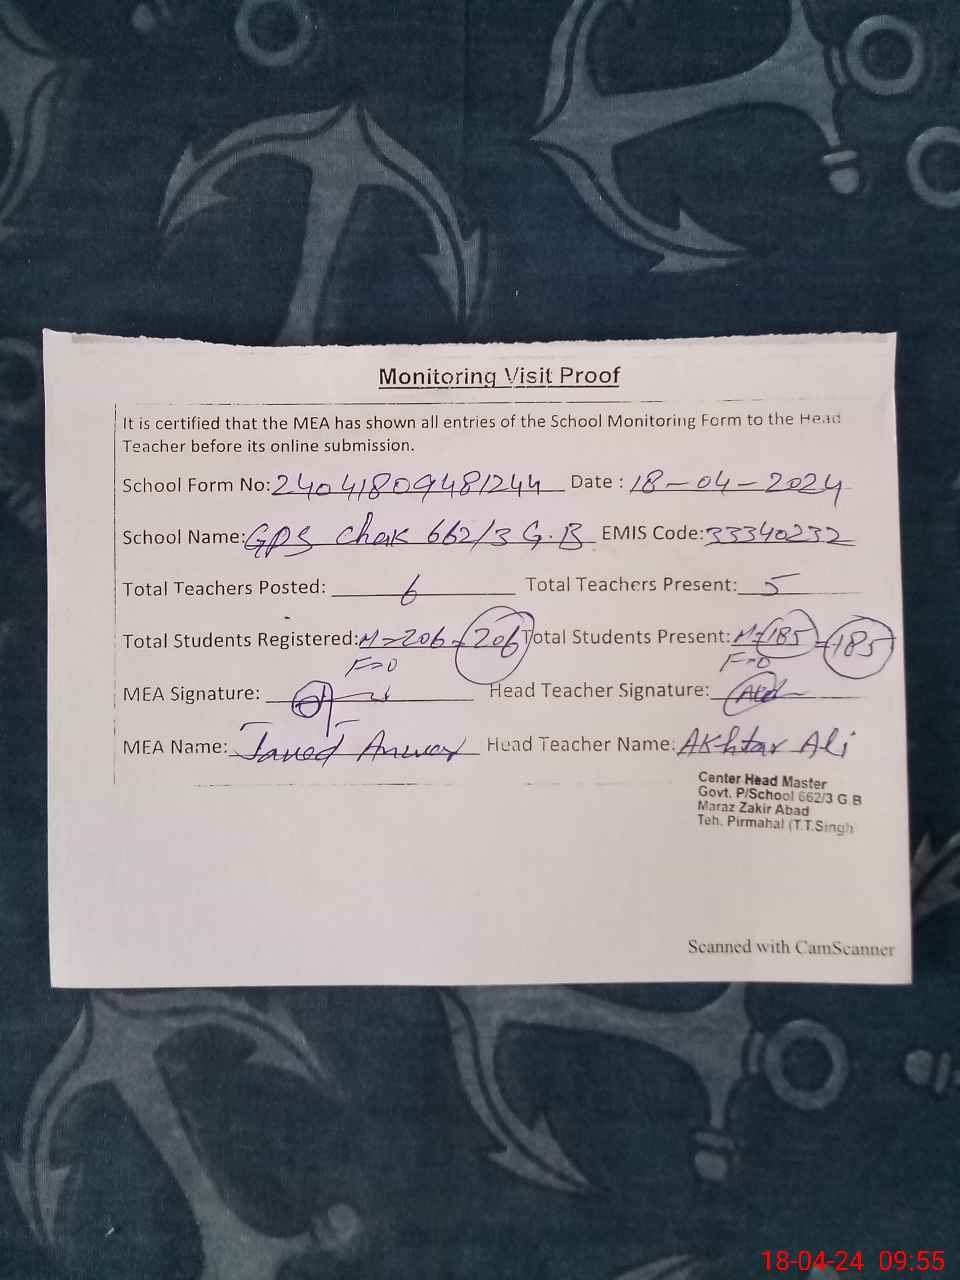 Monitoring Visit Proof
It is certified that the MEA has shown all entries of the School Monitoring Form to the Head
Teacher before its online submission.
School Form No: 24041809481244 Date : 18-04-2024
School Name: GPS Chak 662/3 G.B EMIS Code: 33340232
Total Teachers Posted: 6 Total Teachers Present: 5
Total Students Registered: M=206 = 206 Total Students Present: M=185 = 185
F=0 F=0
MEA Signature: Head Teacher Signature:
MEA Name: Javed Anwar Head Teacher Name: AKhtar Ali
Center Head Master
Govt. P/School 662/3 G.B
Maraz Zakir Abad
Teh. Pirmahal (T.T.Singh
Scanned with CamScanner
18-04-24 09:55